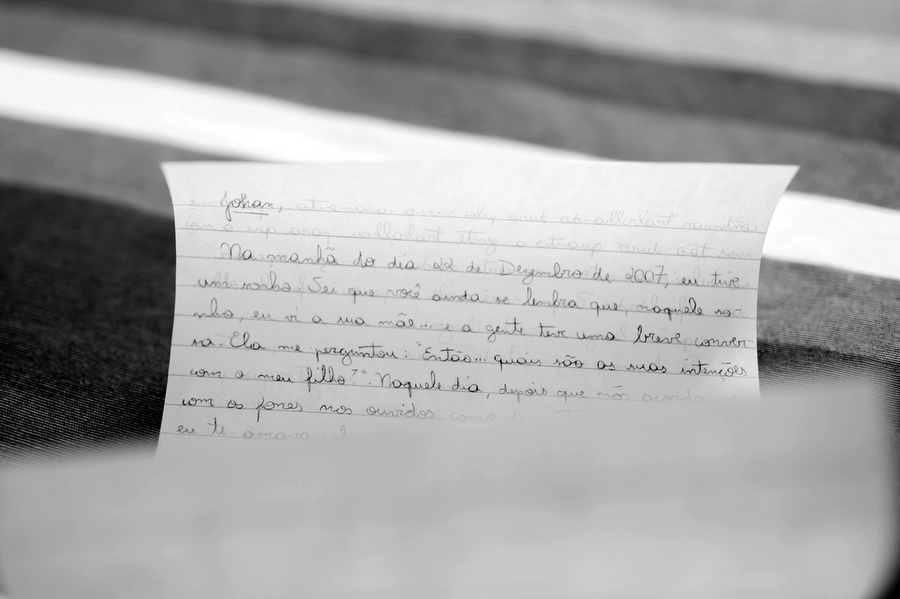 Johan,
Na manhã do dia 22 de Dezembro de 2007, eu tive
um sonho. Sei que você ainda se lembra que, naquele so-
nho, eu vi a sua mãe... e a gente teve uma breve conver-
sa. Ela me perguntou: "Então... quais são as suas intenções
com o meu filho?". Naquele dia, depois que nós
com os fones nos ouvidos como
eu te amava